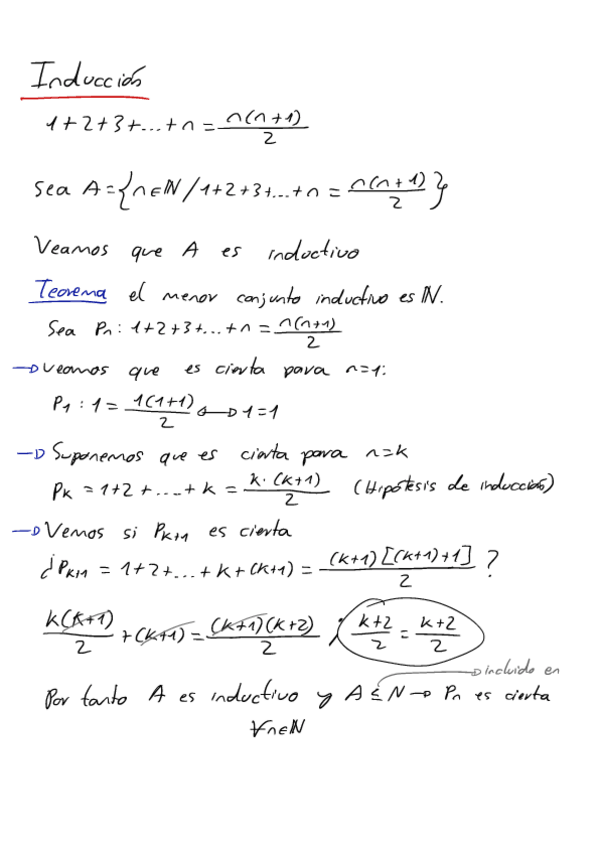 Inducción
1+2+3+...+n = n(n+1)/2
Sea A = {n∈ℕ / 1+2+3+...+n = n(n+1)/2}
Veamos que A es inductivo
Teorema el menor conjunto inductivo es ℕ.
Sea Pn: 1+2+3+...+n = n(n+1)/2
→ Veamos que es cierta para n=1:
P1: 1 = 1(1+1)/2 ↔ 1=1
→ Suponemos que es cierta para n=k
Pk = 1+2+...+k = k·(k+1)/2 (Hipótesis de inducción)
→ Vemos si Pk+1 es cierta
¿Pk+1 = 1+2+...+k+(k+1) = (k+1)[(k+1)+1]/2 ?
k(k+1)/2 + (k+1) = (k+1)(k+2)/2 ; k+2/2 = k+2/2
→ incluido en
Por tanto A es inductivo y A ⊆ N → Pn es cierta
∀n∈ℕ